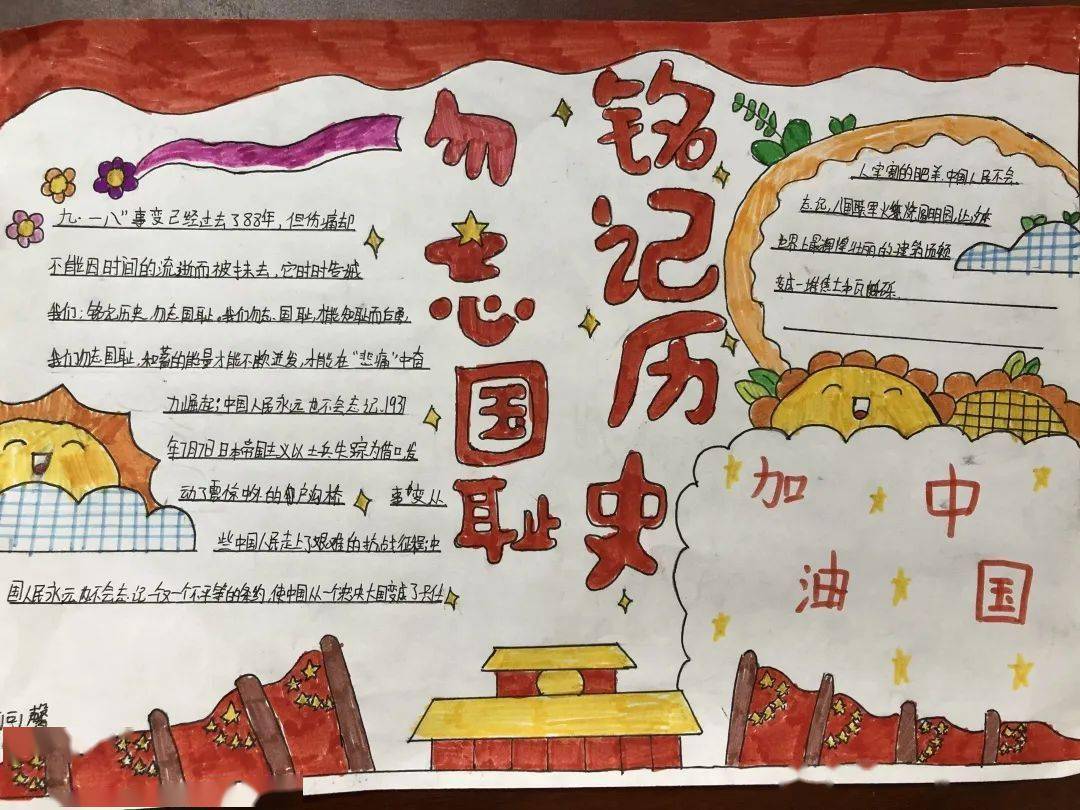 铭记历史
勿忘国耻
九·一八"事变已经过去了88年，但伤痛却
不能因时间的流逝而被抹去，它时时告诫
我们：铭记历史，勿忘国耻。我们勿忘国耻，才能知耻而后勇，
我们勿忘国耻，积蓄的能量才能不断迸发，才能在"悲痛"中奋
力崛起；中国人民永远也不会忘记，1931
年7月7日日本帝国主义以士兵失踪为借口发
动了震惊中外的 沟桥 事变从
些中国人民走上了艰难的抗战征程；中
国人民永远也不会忘记一个又一个不平等的条约，使中国从一个泱泱大国变成了只任
人宰割的肥羊，中国人民不会
忘记，八国联军火烧圆明园，让这座
世界上最辉煌壮丽的建筑顷刻
变成一堆焦土和瓦砾
中国
加油
馨